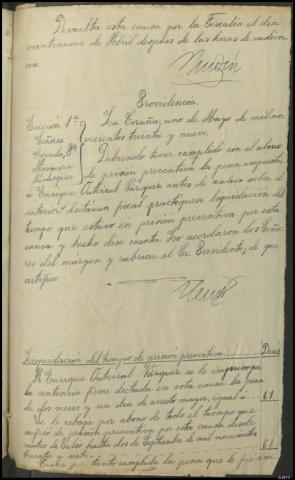 Devuelta esta causa por la Fiscalía el día
veintinueve de Abril despues de las horas de audien
cia.
Providencia.
Sección 1ª
Señores
La Coruña, uno de Mayo de mil no
vecientos treinta y nueve.
Debiendo tener cumplido con el abono
de prisión preventiva la pena impuesta
a Enrique Vázquez antes de sobre el
anterior dictámen fiscal practíquese liquidación del
tiempo que estuvo en prisión preventiva por esta
causa y hecho dese cuenta. Lo acordaron los Seño
res del márgen y rubrica el Sr. Presidente, de que
certifico
Liquidación del tiempo de prisión preventiva........ Dias
A Enrique Vázquez se le impuso por
la sentencia firme dictada en esta causa la pena
de dos meses y un dia de arresto mayor, igual a . . 61
Se le rebaja por abono de todo el tiempo que
sufrió de prisión preventiva por esta causa desde
cuatro de Julio hasta dos de Septiembre de mil novecientos
treinta y . . . 61
Tiene por tanto cumplida la pena que le